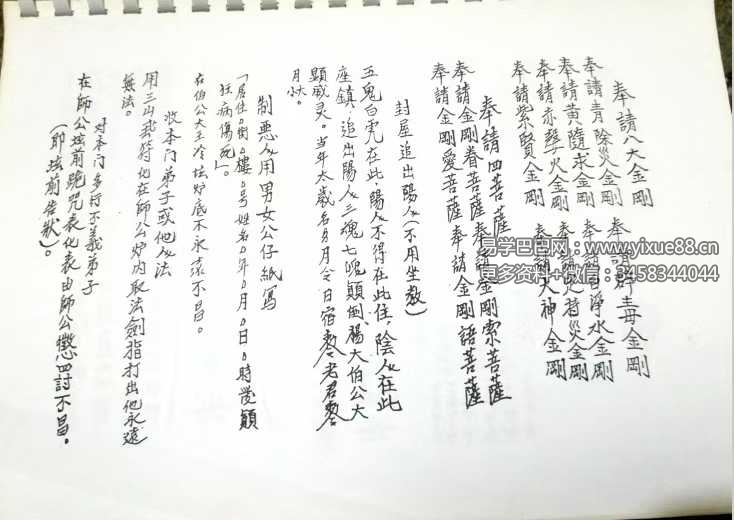 奉請八大金剛
奉請青除災金剛 奉請辟毒金剛
奉請黄隨求金剛 奉請白淨水金剛
奉請赤聲火金剛 奉請定持災金剛
奉請紫賢金剛 奉請大神金剛
奉請四菩薩
奉請金剛眷菩薩 奉請金剛索菩薩
奉請金剛愛菩薩 奉請金剛語菩薩
封屋追出陽人(不用坐教)
五鬼白虎在此,陽人不得在此住,陰人在此
座鎮,追出陽人三魂七魄顛倒,楊大伯公大
顯威灵。当年太歲名另月令日宿
月伏。
制惡人用男女公仔紙寫
「居住0街0樓0号姓名0年0月0日0時發顛
狂病傷死」。
在伯公大王冷坛炉底不永遠不昌。
收本门弟子或他人法
用三山符化在師公炉内取法劍指打出他永遠
無法。
对本门多行不義弟子
在師公坛前跪咒表化表由師公懲罰不昌。
(即坛前告狀)。
易学巴巴网:www.yixue88.cn
更多资料+微信:3458344044